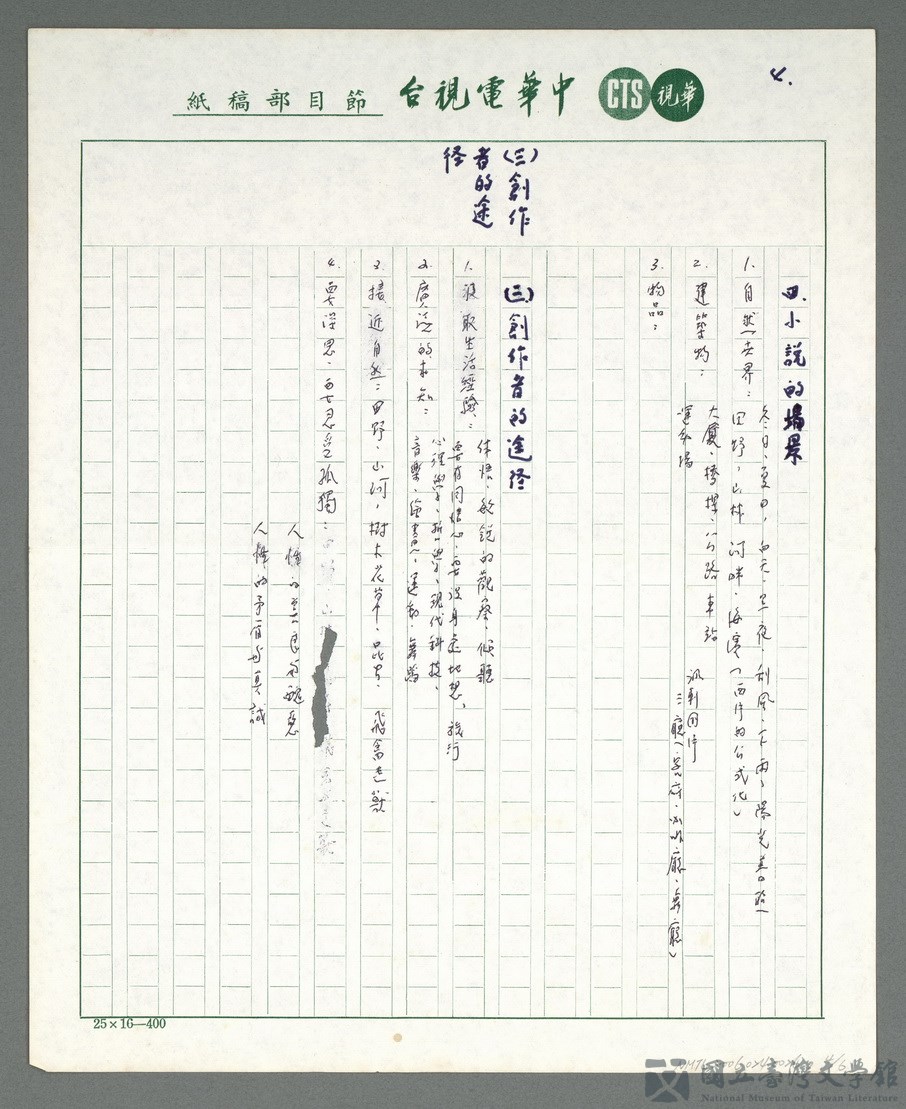 4.
華視 CTS 中華電視台 節目部稿紙
(三)創作
者的途
徑
四、小說的場景
1. 自然世界：冬日、夏日，白天、黑夜，刮風、下雨，陽光普照
田野，山林 河畔、海濱（西片的公式化）
2. 建築物：大廈、橋樑、公路 車站
運動場 諷刺國片
三廳（客廳、咖啡廳、餐廳）
3. 物品：
(三)創作者的途徑
1. 汲取生活經驗：体悟、敏銳的觀察、傾聽
要有同情心、要設身處地想、旅行
2. 廣泛的求知：心理學、哲學、現代科技、
音樂、繪畫、運動、舞蹈
3. 接近自然：田野、山河，樹木花草、昆虫、飛禽走獸
4. 要深思、要忍受孤獨：
人性的善良與醜惡
人性的矛盾與真誠
25×16—400
國立臺灣文學館
National Museum of Taiwan Literature